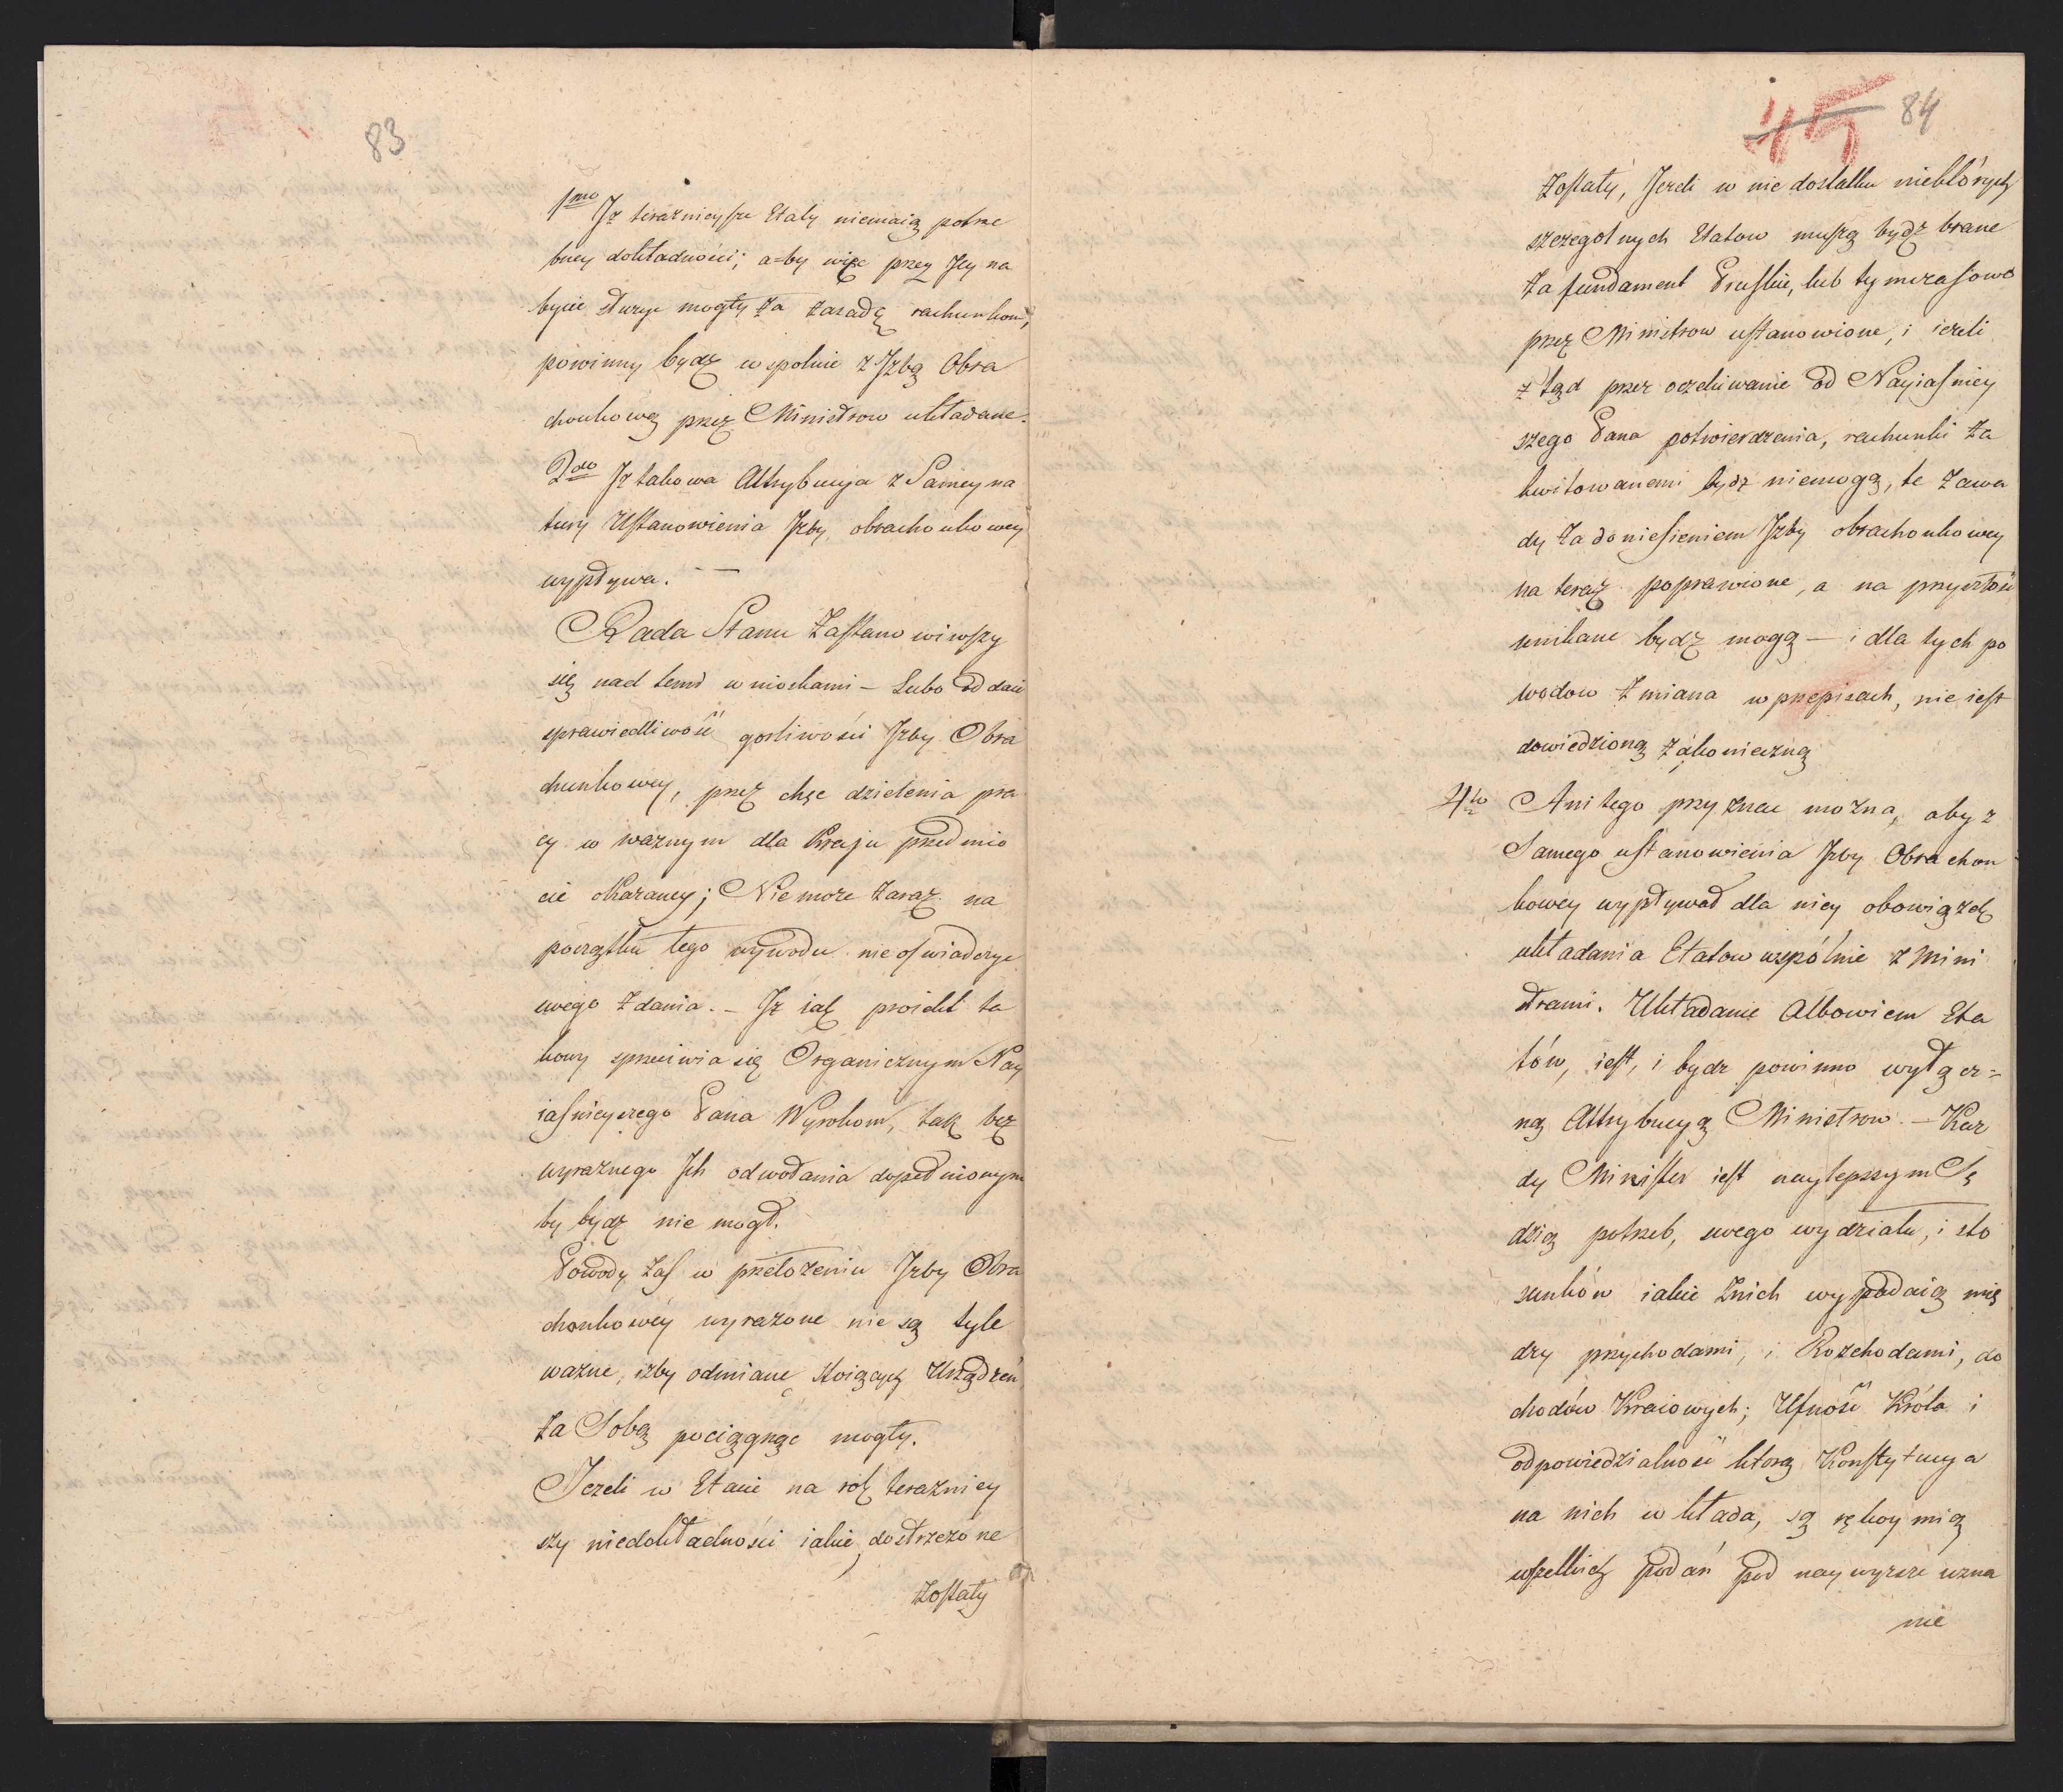 83
1mo Iz terazniejsze Etaty niemaią potrze
bney dokładności; a=by więc przez Jey na
bycie służyć mogły za zasadę rachunkow,
powinny bydz wspolnie z Izbą Obra
chonkową przez Ministrow układane.
2do Iz takowa Attrybucya z Samey na
tury Ustanowienia Izby obrachonkowey
wypływa. —
Rada Stanu Zastanowiwszy
się nad temi wnioskami – Lubo oddaie
sprawiedliwość gorliwości Izby Obra
chunkowey, przez chęc dzielenia pra
cy w waznym dla Kraju przedmio
cie okazaney; Nie moze zaraz na
początku tego wywodu nie oswiadczyc
swego zdania. – Iz iak proiekt ta
kowy sprzeciwia się Organicznym Nay
iasnieyszego Pana Wyrokom, tak bez
wyraznego Ich odwołania dopełnionym
by bydz nie mogł.
Powody zas w przełozeniu Izby Obra
chonkowéy wyrazone nie są tyle
wazne, izby odmianę stoiących Urządzeń
za Sobą pociągnąc mogły.
Jezeli w Etacie na rok terazniey
szy niedokładności iakie dostrzezone
zostały
45 84
zostały, Jezeli w niedostatku niektórych
szczegolnych Etatow muszą bydz brane
za fundament Pruskie, lub tymczasowo
przez Ministrow ustanowione, i iezeli
z tąd przez oczekiwanie od Nayiasniey
szego Pana potwierdzenia, rachunki za
kwitowanemi bydz niemogą, te zawa
dy za doniesieniem Izby obrachonkowey
na teraz poprawione, a na przyszłość
unikane bydz mogą — i dla tych po
wodow zmiana w przepisach, nie iest
dowiedzioną za konieczną
4to Ani tego przyznac mozna, aby z
Samego ustanowienia Izby Obrachon
kowey wypływał dla niey obowiązek
układania Etatow wspólnie z Mini
strami. Układanie Albowiem Eta
tów, iest, i bydz powinno wyłącz=
ną Attrybucyą Ministrow. – Kaz
dy Minister iest naylepszym Sę
dzią potrzeb, swego wydziału, i sto
sunków iakie z nich wypadaią mię
dzy przychodami, i Rozchodami, do
chodów Kraiowych; Ufność Króla i
odpowiedzialność ktorą Konstytucya
na nich wkłada, są rękoymią
wszelkich podań pod naywyzsze uzna
nie